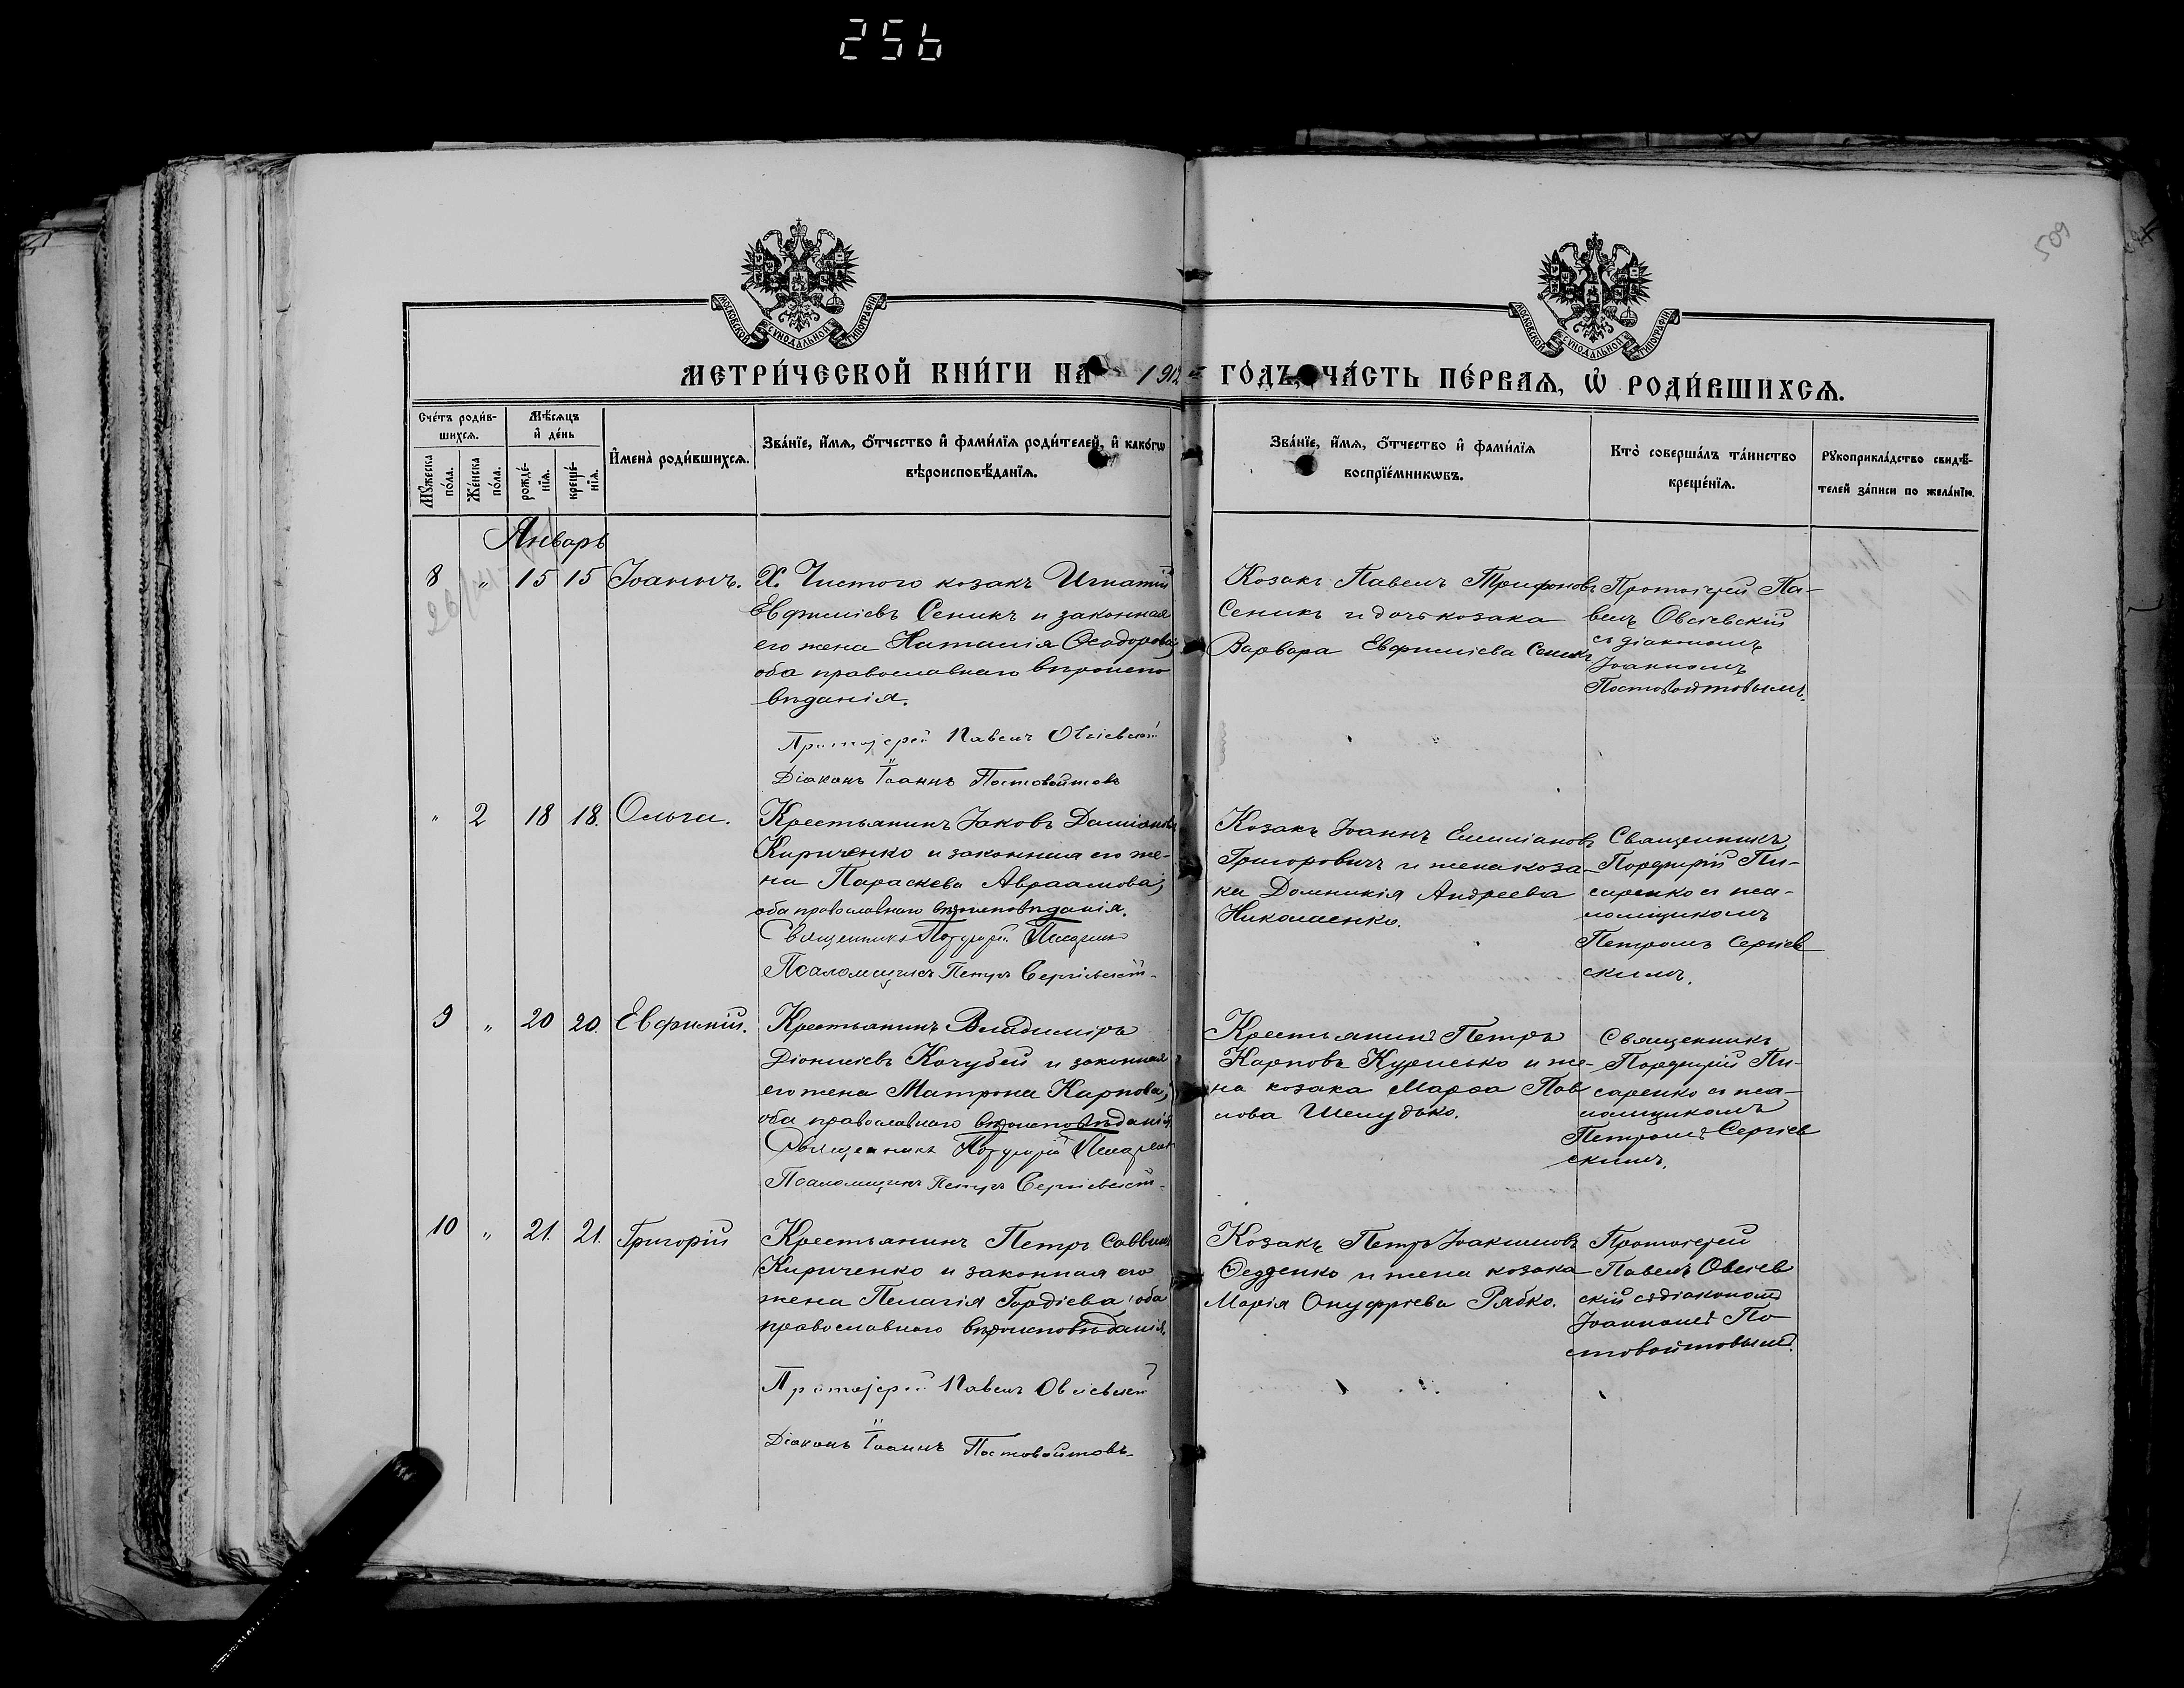 256
509
МОСКОВСКОЙ СУНОДАЛЬНОЙ ТИПОГРАФІИ
МОСКОВСКОЙ СУНОДАЛЬНОЙ ТИПОГРАФІИ
МЕТРИ́ЧЕСКОЙ КНИ́ГИ НА 1912 ГО́ДЪ, ЧА́СТЬ ПЕ́РВАѦ, Ѡ҆ РОДИ́ВШИХСѦ.
Сче́тъ роди́в-
шихсѧ.
Мꙋ́жеска по́ла.
Же́нска по́ла.
Мѣ́сѧцъ
и҆ де́нь
рожде́-
нїѧ.
креще́-
нїѧ.
И҆мена̀ роди́вшихсѧ.
Зва́нїе, и҆́мѧ, ѻ҆́тчество и҆ фами́лїѧ роди́телей, и҆ како́гѡ
вѣроисповѣ́данїѧ.
Зва́нїе, и҆́мѧ, ѻ҆́тчество и҆ фами́лїѧ
воспрїе́мникѡвъ.
Кто̀ соверша́лъ та́инство
креще́нїѧ.
Рꙋкоприкла́дство свидѣ́-
телей за́писи по жела́нїю.
Январь
8 " 15 15 Іоаннъ.
Х. Чистого козакъ Игнатій
Евфиміевъ Сеникъ и законная
его жена Наталія Ѳеодорова;
оба православнаго вѣроиспо
вѣданія.
Протоіерей Павелъ Овсіевскій
Діаконъ Іоаннъ Постовойтовъ
Козакъ Павелъ Трифоновъ
Сеникъ и дочь козака
Варвара Евфиміева Сеникъ
Протоіерей Па-
велъ Овсіевскій
съ діакономъ
Іоанномъ
Постовойтовымъ.
" 2 18 18. Ольга.
Крестьянинъ Іаковъ Даміановъ
Кириченко и законная его же-
на Параскева Авраамова;
оба православнаго вѣроисповѣданія.
Священникъ Порфирій Писаренко
Псаломщикъ Петръ Сергіевскій
Козакъ Іоаннъ Емиліановъ
Григоровичъ и жена коза-
ка Домникія Андреева
Николаенко.
Священникъ
Порфирій Пи-
саренко съ пса-
ломщикомъ
Петромъ Сергіев
скимъ.
9 " 20 20. Евфимій.
Крестьянинъ Владиміръ
Діонисіевъ Кочубей и законная
его жена Матрона Карпова;
оба православнаго вѣроисповѣданія
Священникъ Порфирій Писаренко
Псаломщикъ Петръ Сергіевскій
Крестьянинъ Петръ
Карповъ Курисько и же-
на козака Марѳа Пав
лова Шелудько.
Священникъ
Порфирій Пи-
саренко съ пса-
ломщикомъ
Петромъ Сергіев
скимъ.
10 " 21. 21. Григорій
Крестьянинъ Петръ Саввинъ
Кириченко и законная его
жена Пелагія Гордіева; оба
православнаго вѣроисповѣданія.
Протоіерей Павелъ Овсіевскій
Діаконъ Іоаннъ Постовойтовъ
Козакъ Петръ Іоакимовъ
Ѳедденко и жена козака
Марія Онуфріева Рябко.
Протоіерей
Павелъ Овсіев
скій съ діаконом
Іоанномъ По
стовойтовым.